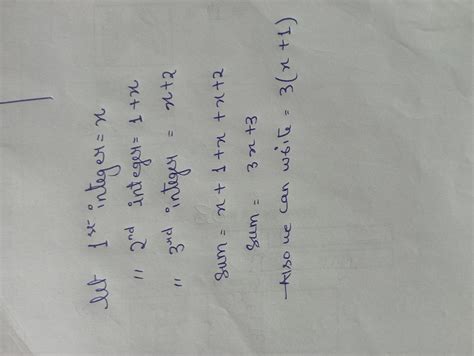 let 1st integer = x
" 2nd integer = 1+x
" 3rd integer = x+2
Sum = x+1+x+x+2
Sum = 3x+3
Also we can write = 3(x+1)